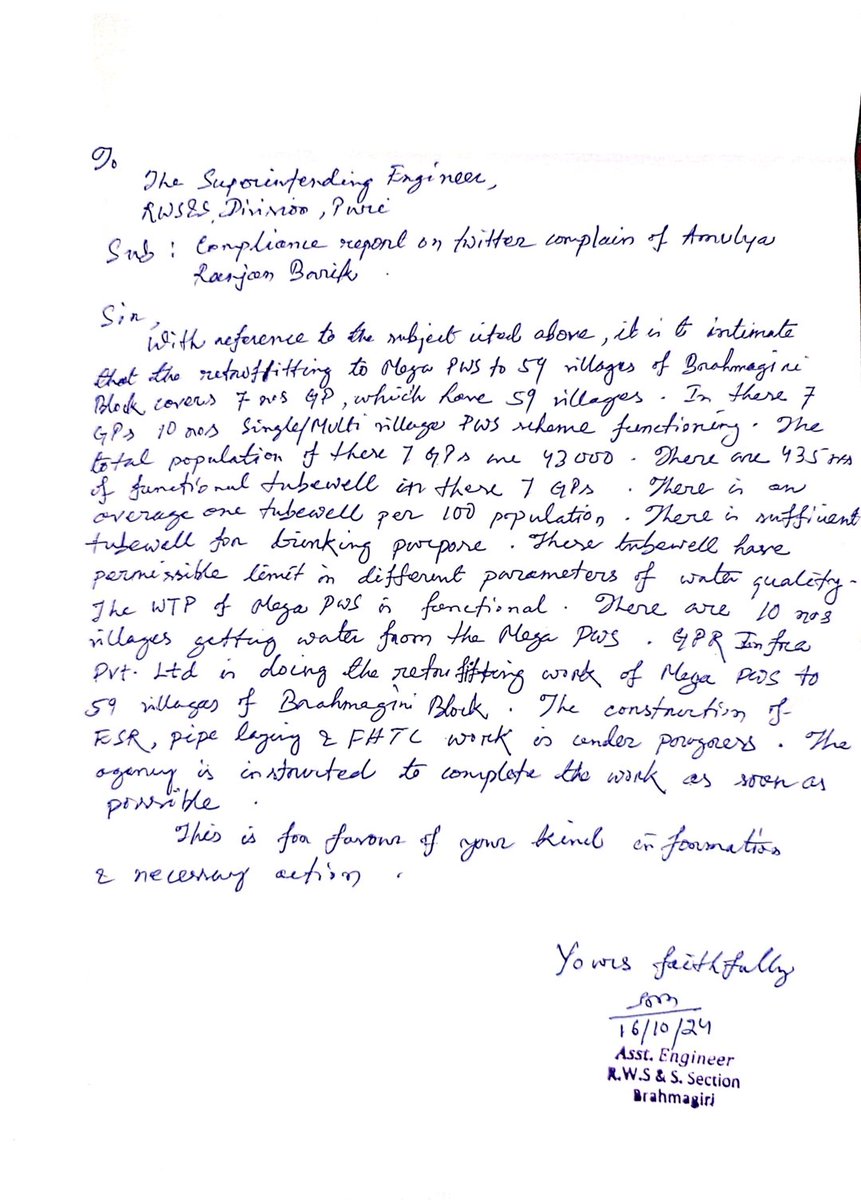 To
The Superintending Engineer,
RWS&S, Division, Puri
Sub : Compliance report on twitter complain of Amulya
Ranjan Barik .
Sir,
With reference to the subject cited above, it is to intimate
that the retrofitting to Mega PWS to 59 villages of Brahmagiri
Block covers 7 nos GP, which have 59 villages . In these 7
GPs 10 nos Single/Multi village PWS scheme functioning . The
total population of these 7 GPs are 43000 . There are 435 nos
of functional tubewell in these 7 GPs . There is an
average one tubewell per 100 population . There is sufficient
tubewell for drinking purpose . These tubewell have
permissible limit in different parameters of water quality .
The WTP of Mega PWS is functional . There are 10 nos
villages getting water from the Mega PWS . GPR Infra
Pvt. Ltd is doing the retrofitting work of Mega PWS to
59 villages of Brahmagiri Block . The construction of
ESR, pipe laying & FHTC work is under progress . The
agency is instructed to complete the work as soon as
possible .
This is for favour of your kind information
& necessary action .
Yours faithfully
16/10/24
Asst. Engineer
R.W.S & S. Section
Brahmagiri